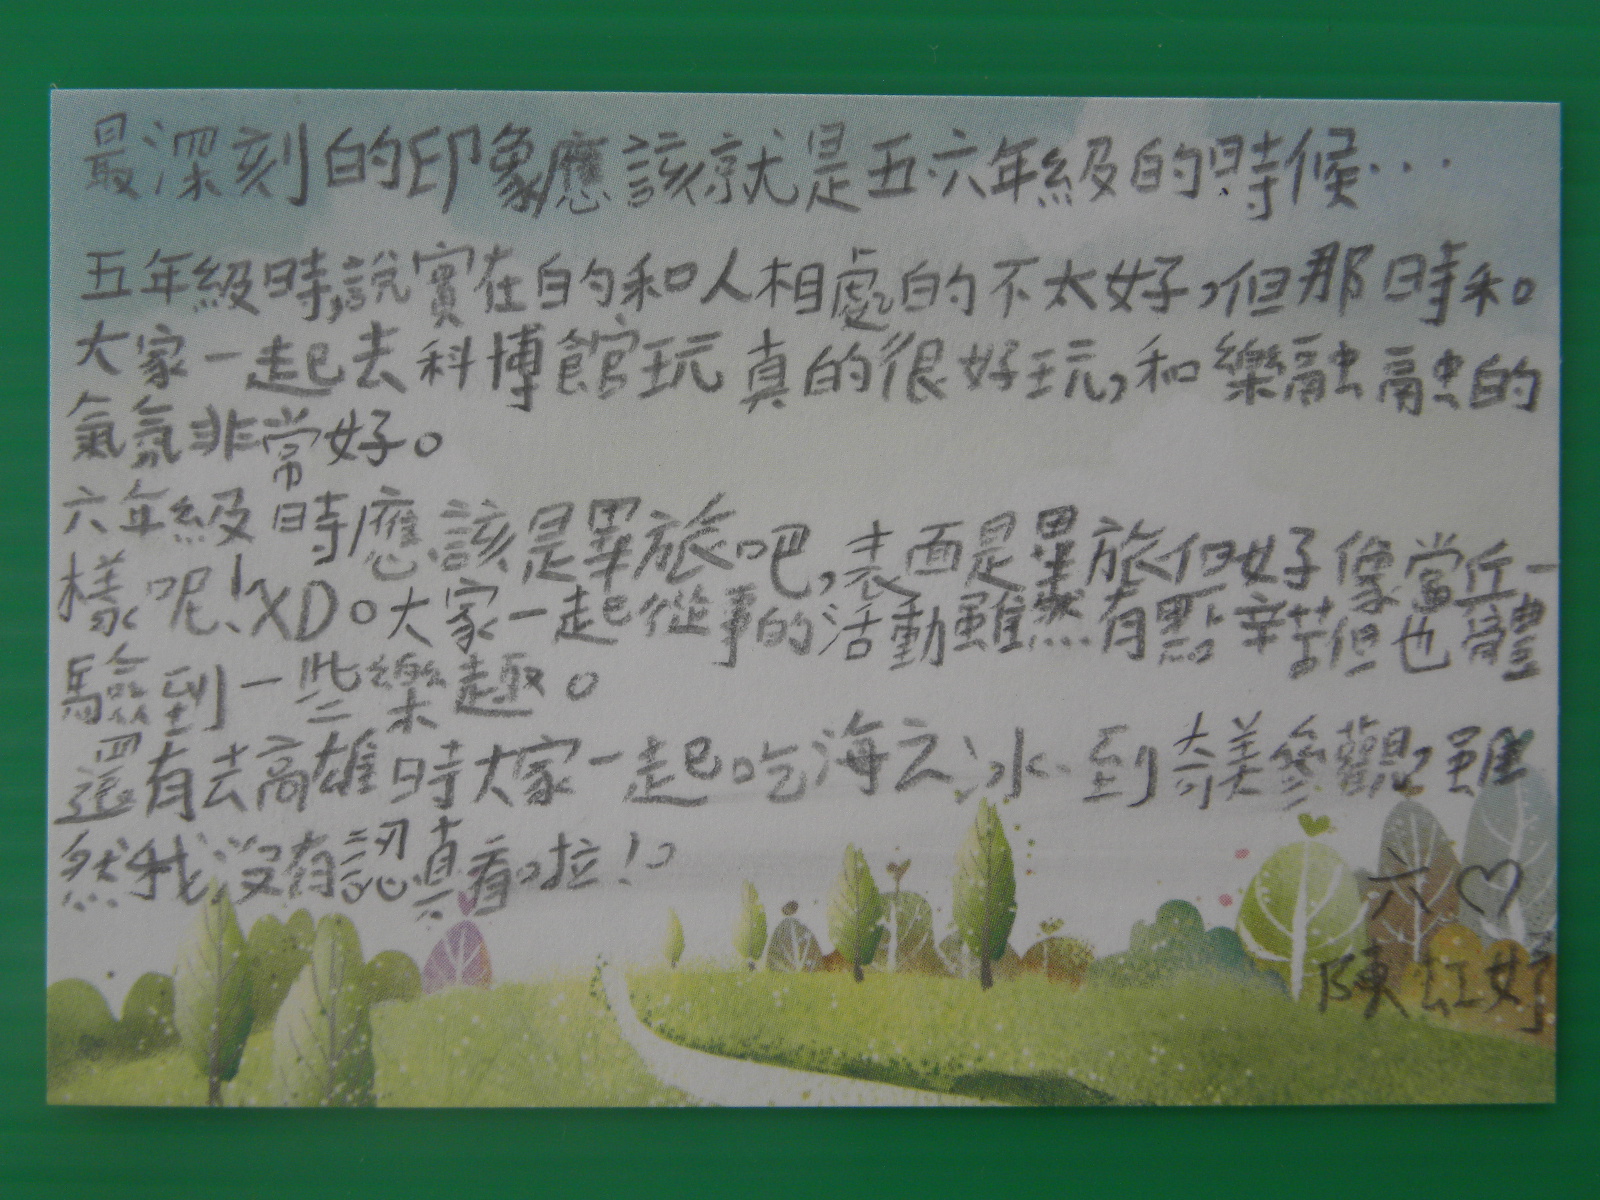 最深刻的印象應該就是五六年級的時候…
五年級時,說實在的和人相處的不太好,但那時和
大家一起去科博館玩真的很好玩,和樂融融的
氣氛非常好。
六年級時應該是畢旅吧,表面是畢旅但好像當兵一
樣呢!XD。大家一起從事的活動雖然有點辛苦但也體
驗到一些樂趣。
還有去高雄時大家一起吃海之冰、到奇美參觀,雖
然我沒有認真看啦!
六♡
陳虹妤